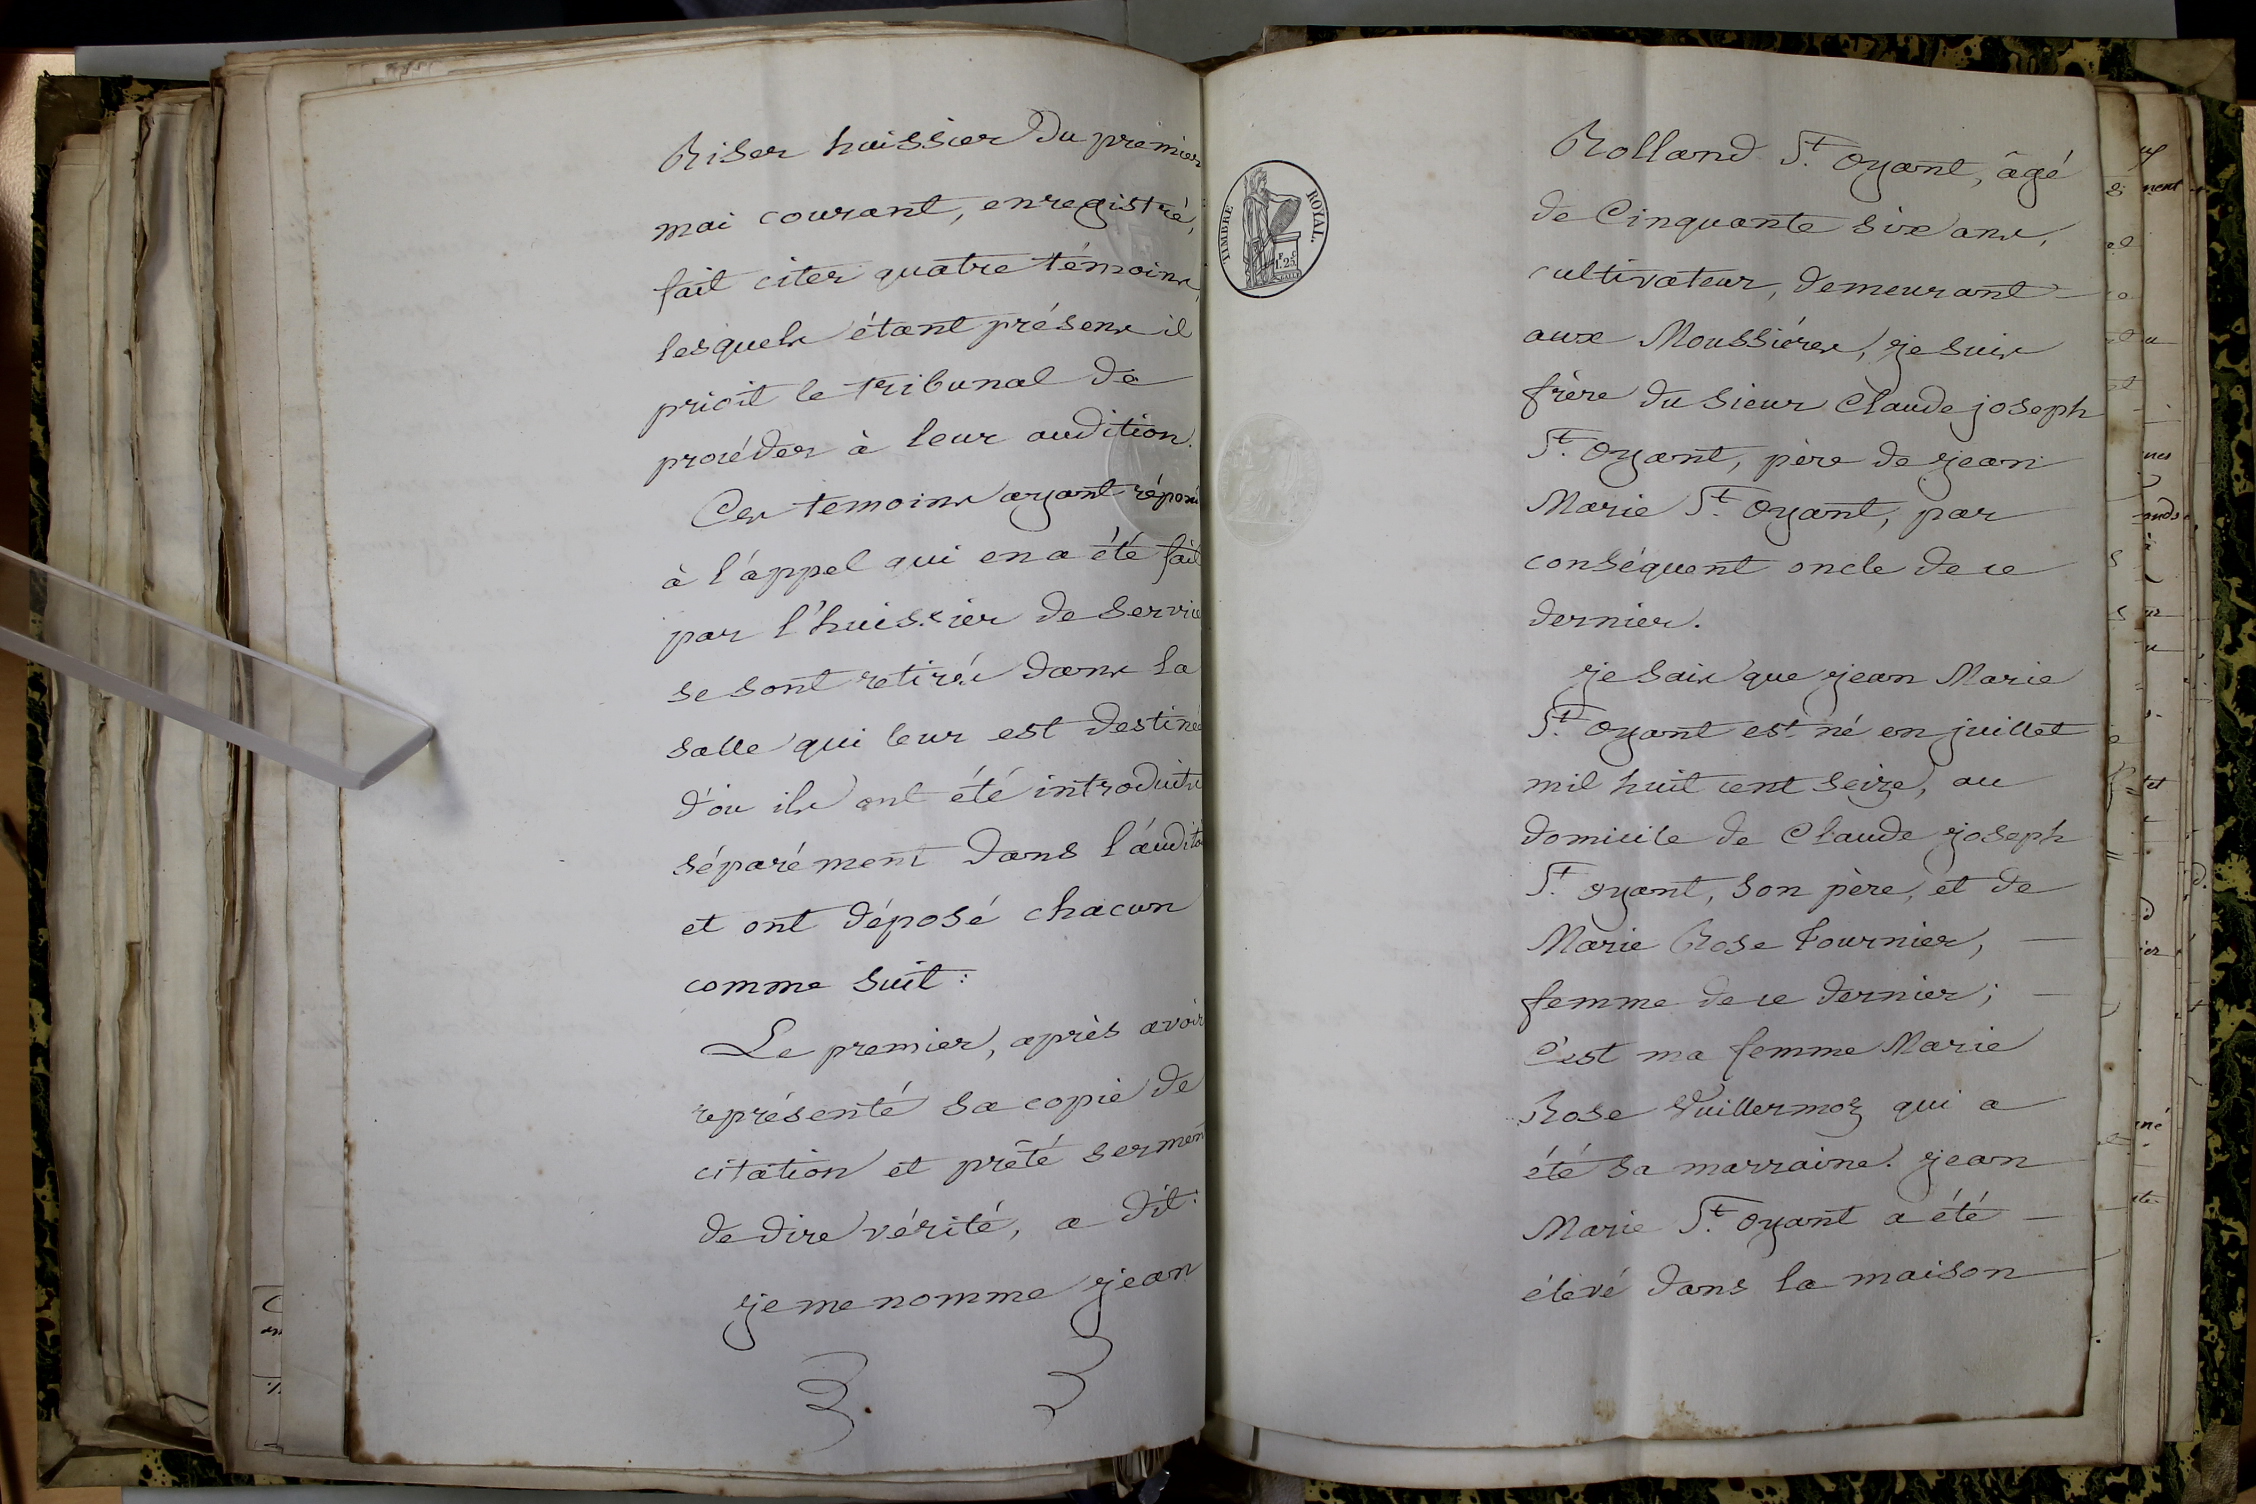 Riser huissier du premier
mai courant, enregistré,
fait citer quatre témoins,
lesquels étant présens il
prioit le tribunal de
procéder à leur audition.
Ces temoins ayant répon
à l'appel qui en a été fait
par l'huissier de service
se sont retirés dans la
salle qui leur est destinée
d'ou ils ont été introduits
séparément dans l'audito
et ont déposé chacun
comme suit :
Le premier, après avoir
représenté sa copie de
citation et prêté serment
de dire vérité, a dit :
je me nomme jean
TIMBRE ROYAL.
1.25
Rolland St. Oyant, âgé
de Cinquante six ans,
cultivateur, demeurant
aux Moussières, je suis
frère du sieur Claude joseph
St. Oyant, père de jean
Marie St. Oyant, par
conséquent oncle de ce
dernier.
je sais que jean Marie
St. Oyant est né en juillet
mil huit cent seize, au
domicile de Claude joseph
St. oyant, son père, et de
Marie Rose Fournier,
femme de ce dernier;
C'est ma femme Marie
Rose Vuillermoz qui a
été sa marraine. jean
Marie St. Oyant a été
élevé dans la maison